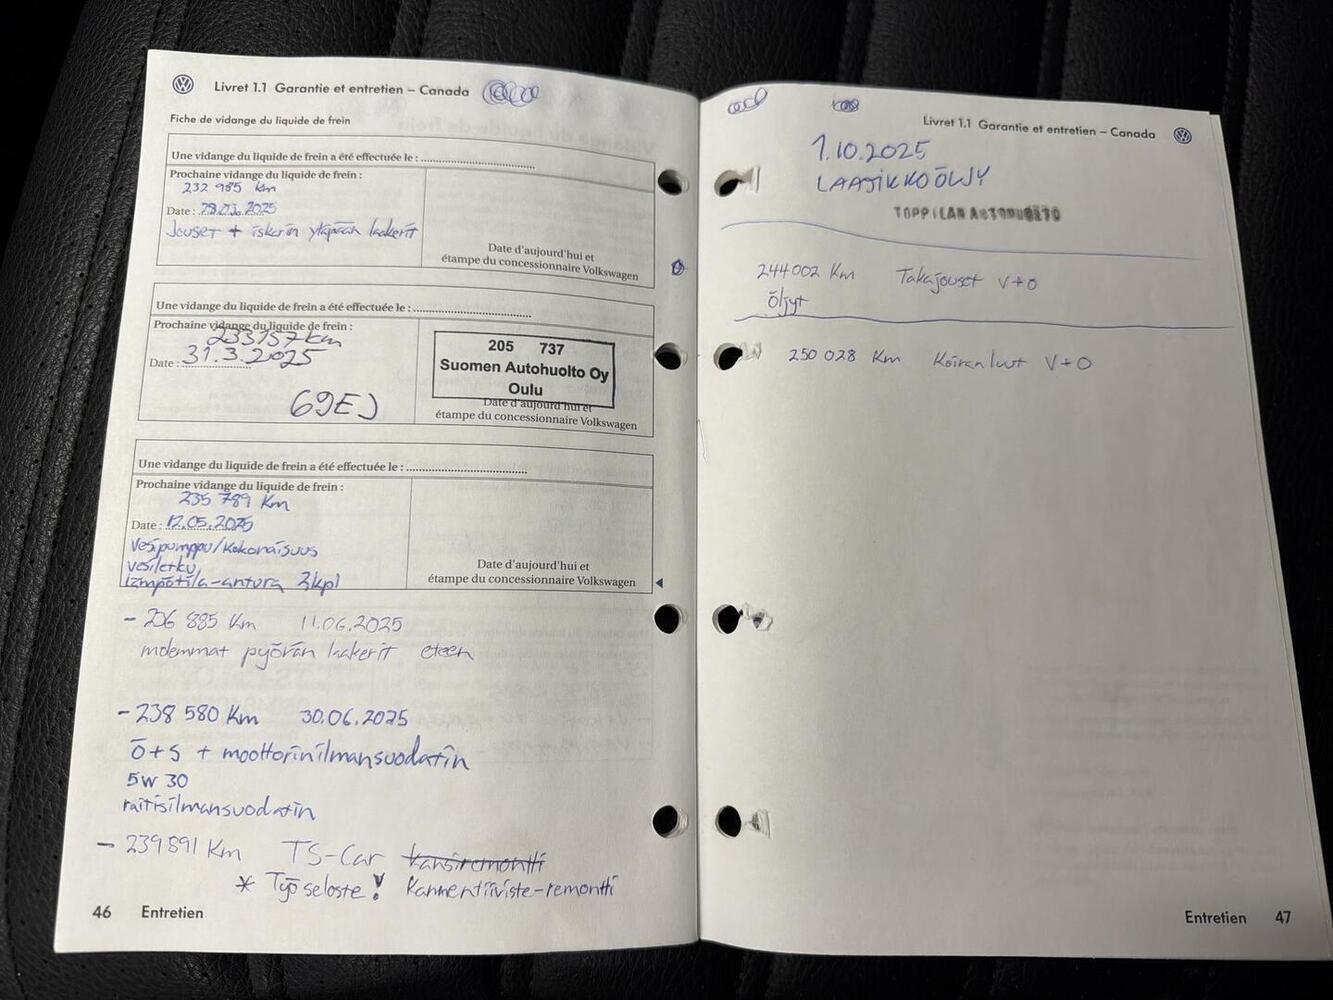 Livret 1.1 Garantie et entretien – Canada
Fiche de vidange du liquide de frein
Une vidange du liquide de frein a été effectuée le :
Prochaine vidange du liquide de frein :
232 985 km
Date : 29.03.2025
Jouset + iskarin yläpään laakerit
Date d'aujourd'hui et
étampe du concessionnaire Volkswagen
Une vidange du liquide de frein a été effectuée le :
Prochaine vidange du liquide de frein :
233157 km
Date : 31.3.2025
69EJ
205 737
Suomen Autohuolto Oy
Oulu
Date d'aujourd'hui et
étampe du concessionnaire Volkswagen
Une vidange du liquide de frein a été effectuée le :
Prochaine vidange du liquide de frein :
235 789 Km
Date : 12.05.2025
Vesipumppu/Kokonaisuus
vesiletku,
Lämpötila-antura 2kpl
Date d'aujourd'hui et
étampe du concessionnaire Volkswagen
- 236 885 Km 11.06.2025
molemmat pyörän laakerit eteen
- 238 580 Km 30.06.2025
Ö+S + moottorinilmansuodatin
5W 30
raitisilmansuodatin
- 239 891 Km TS-Car kansiremontti
* Työseloste! Kannentiiviste-remontti
46 Entretien
Livret 1.1 Garantie et entretien – Canada
1.10.2025
LAATIKKOÖLJY
TOPPILAN AUTOHUOLTO
244 002 Km Takajouset V+O
Öljyt
250 028 Km Koiranluut V+O
Entretien 47